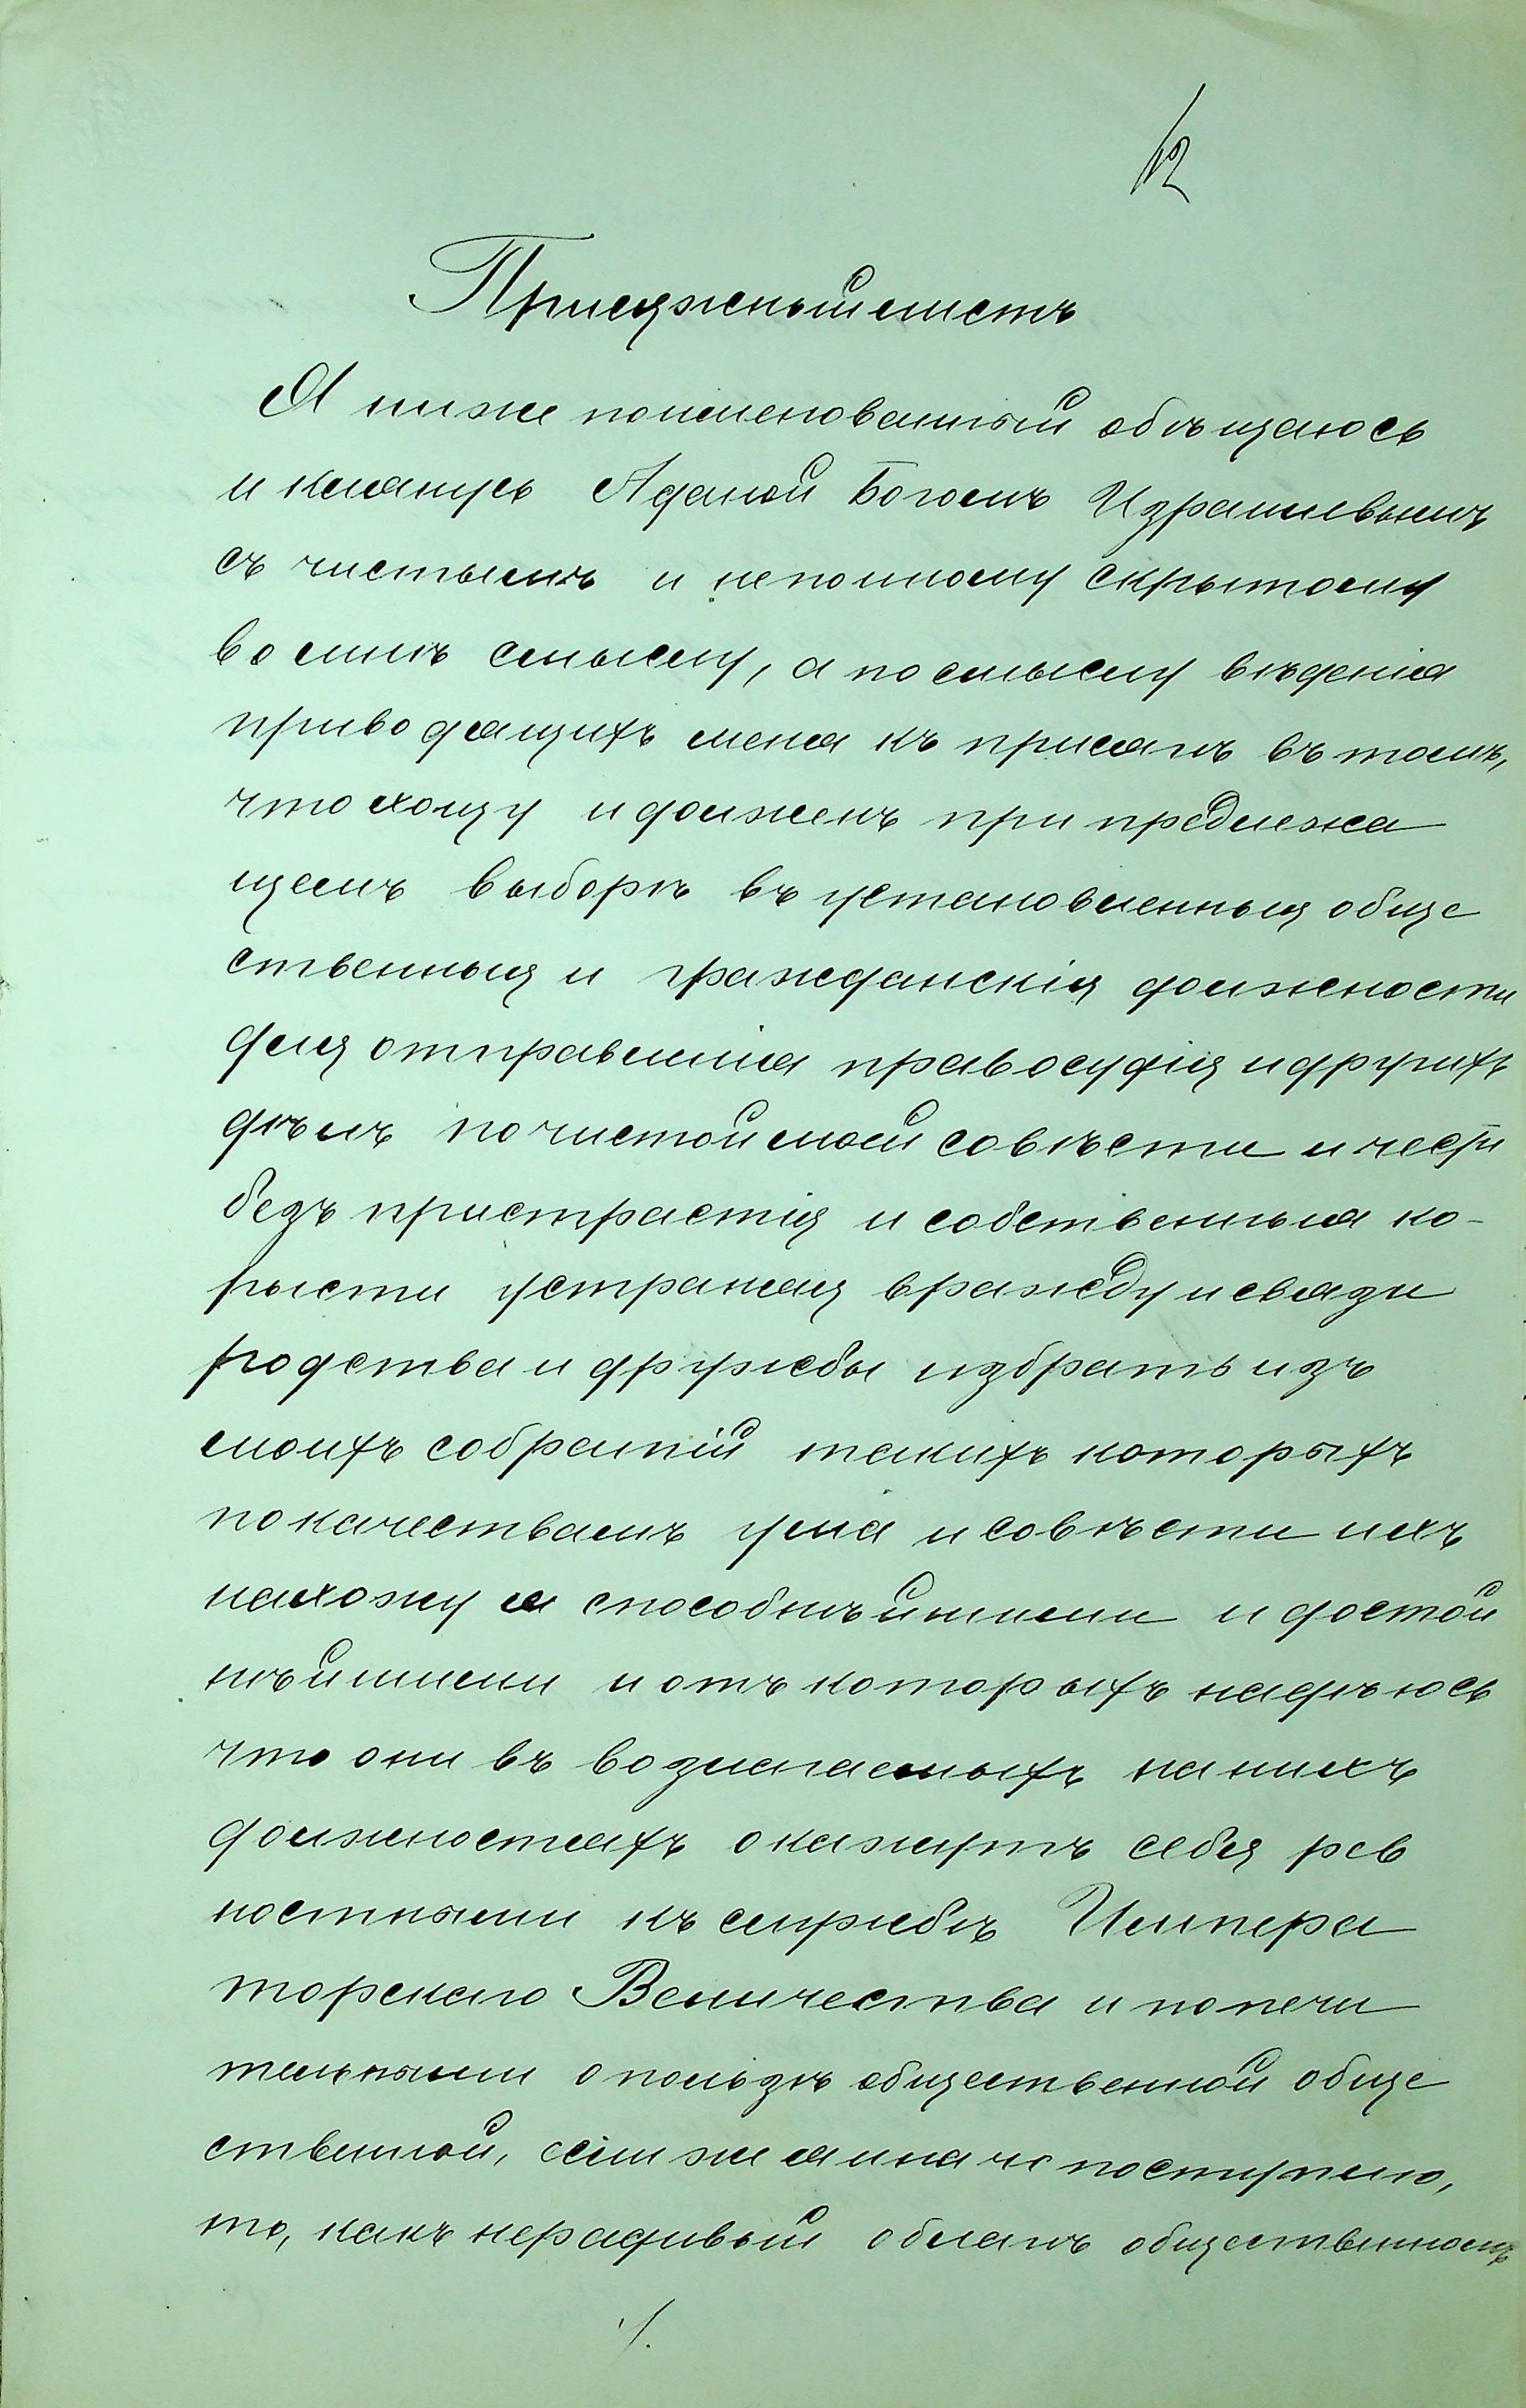 12
Присяжный листъ
Я ниже поименованный обѣщаюсь
и клянусь Аданой Богомъ Израилевымъ
съ чистымъ и не по иному скрытому
во мнѣ смыслу, а по смыслу вѣденія
приводящихъ меня къ присягѣ въ томъ,
что хощу и долженъ при предлежа
щемъ выборѣ въ установленныя обще
ственныя и гражданскія должности
для отправленія правосудія и другихъ
дѣлъ по чистой моей совѣсти и чести
безъ пристрастія и собственныя ко-
рысти устраняя вражду и связи
родства и дружбы избрать изъ
моихъ собратій такихъ которыхъ
по качествамъ ума и совѣсти ихъ
нахожу я способнѣйшими и достой
нѣйшими и отъ которыхъ надѣюсь
что они въ возлагаемыхъ на нихъ
должностяхъ окажутъ себя рев
ностными къ службѣ Импера
торскаго Величества и попечи
тельными о пользѣ общественной обще
ственной, если же я иначе поступлю,
то, какъ нерадивый о благѣ общественномъ